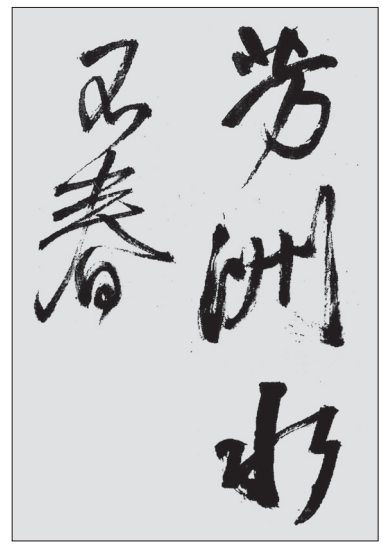 芳洲水
春